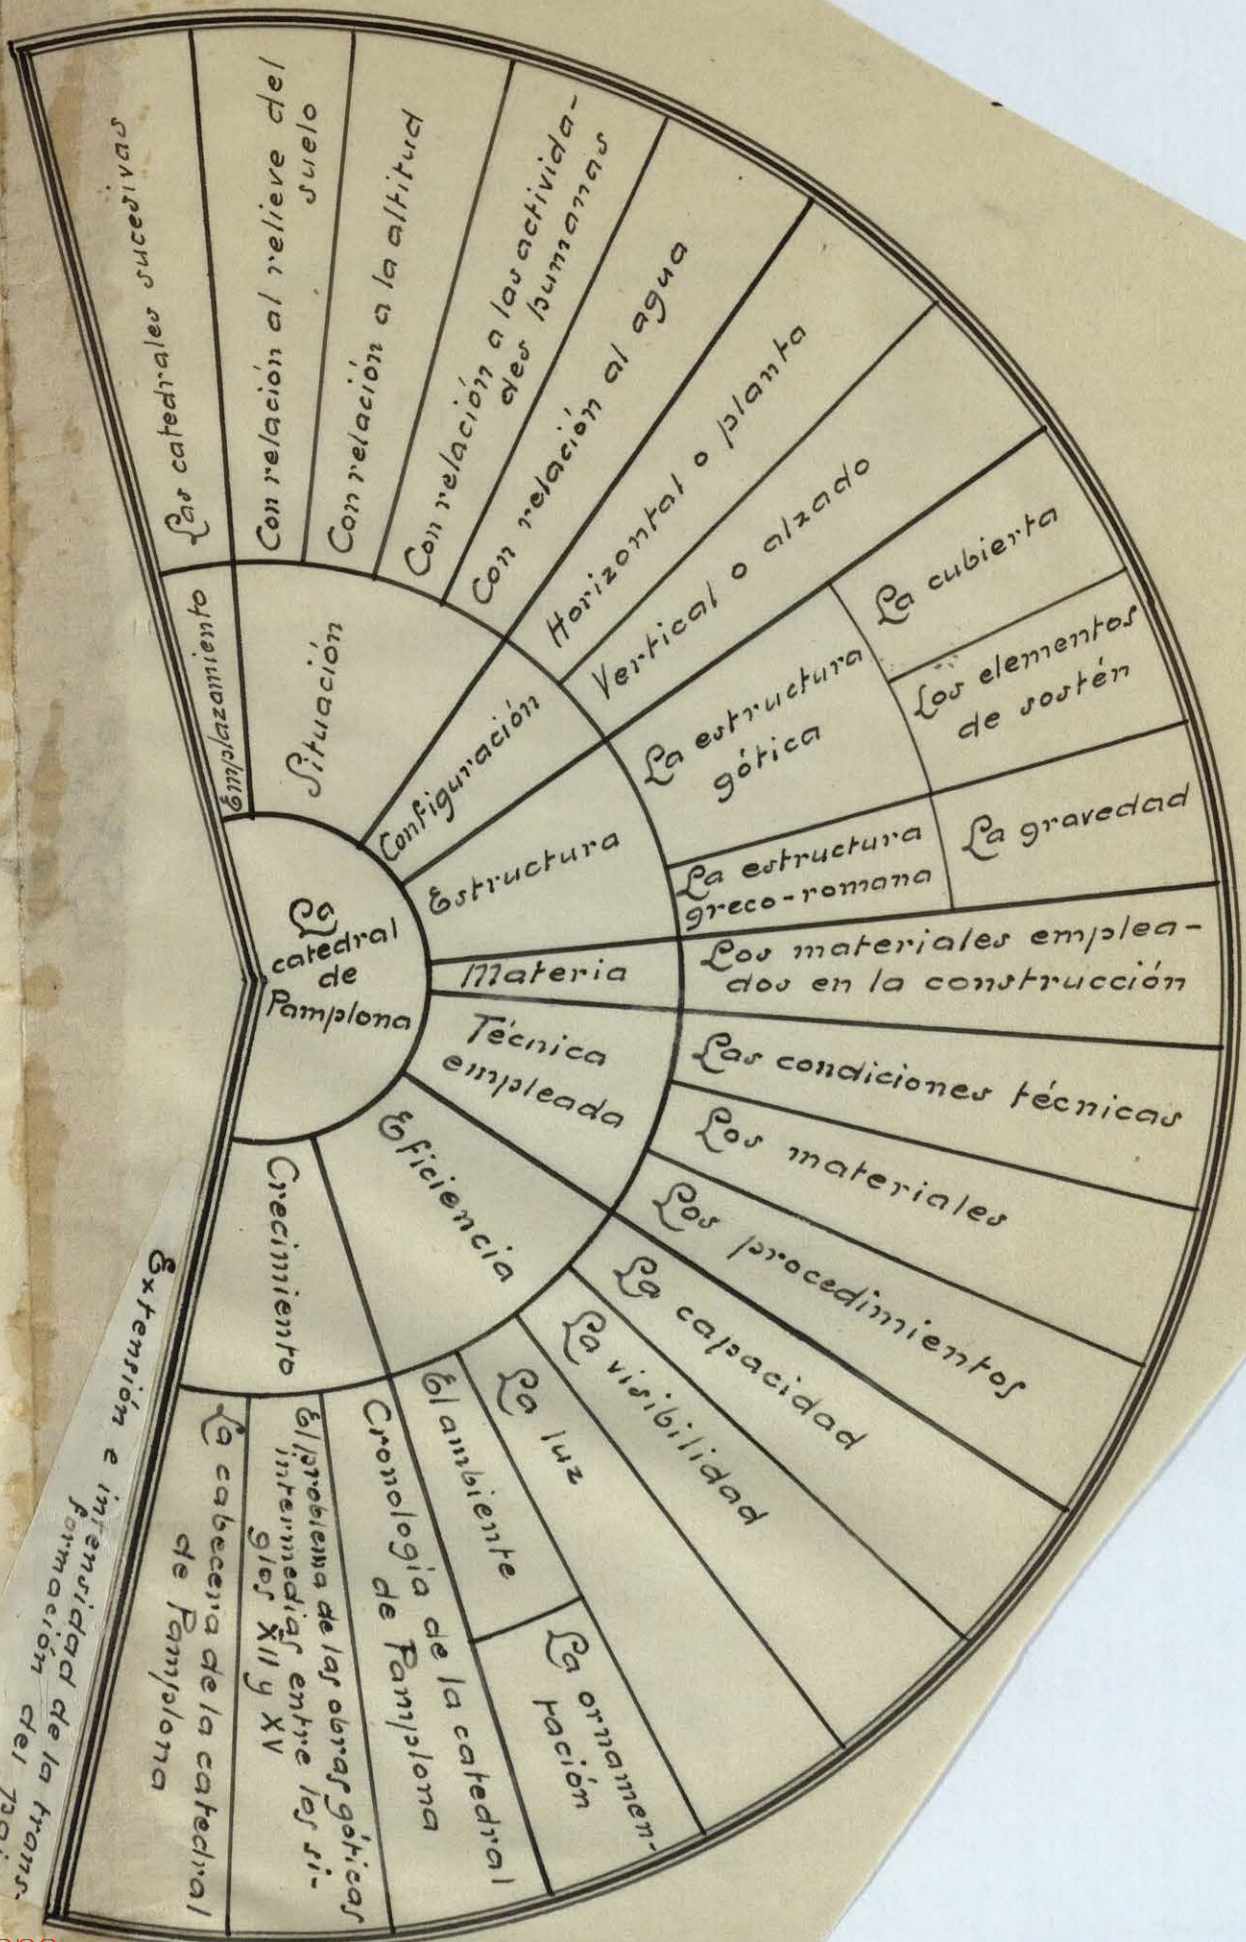 La
catedral
de
Pamplona
Emplazamiento
Las catedrales sucesivas
Situación
Con relación al relieve del
suelo
Con relación a la altitud
Con relación a las activida-
des humanas
Con relación al agua
Configuración
Horizontal o planta
Vertical o alzado
Estructura
La estructura
gótica
La cubierta
Los elementos
de sostén
La estructura
greco-romana
La gravedad
Materia
Los materiales emplea-
dos en la construcción
Técnica
empleada
Las condiciones técnicas
Los materiales
Los procedimientos
Eficiencia
La capacidad
La visibilidad
La luz
El ambiente
La ornamen-
tación
Crecimiento
Cronología de la catedral
de Pamplona
El problema de las obras góticas
intermedias entre los si-
glos XII y XV
La cabecera de la catedral
de Pamplona
Extensión e intensidad de la trans-
formación del